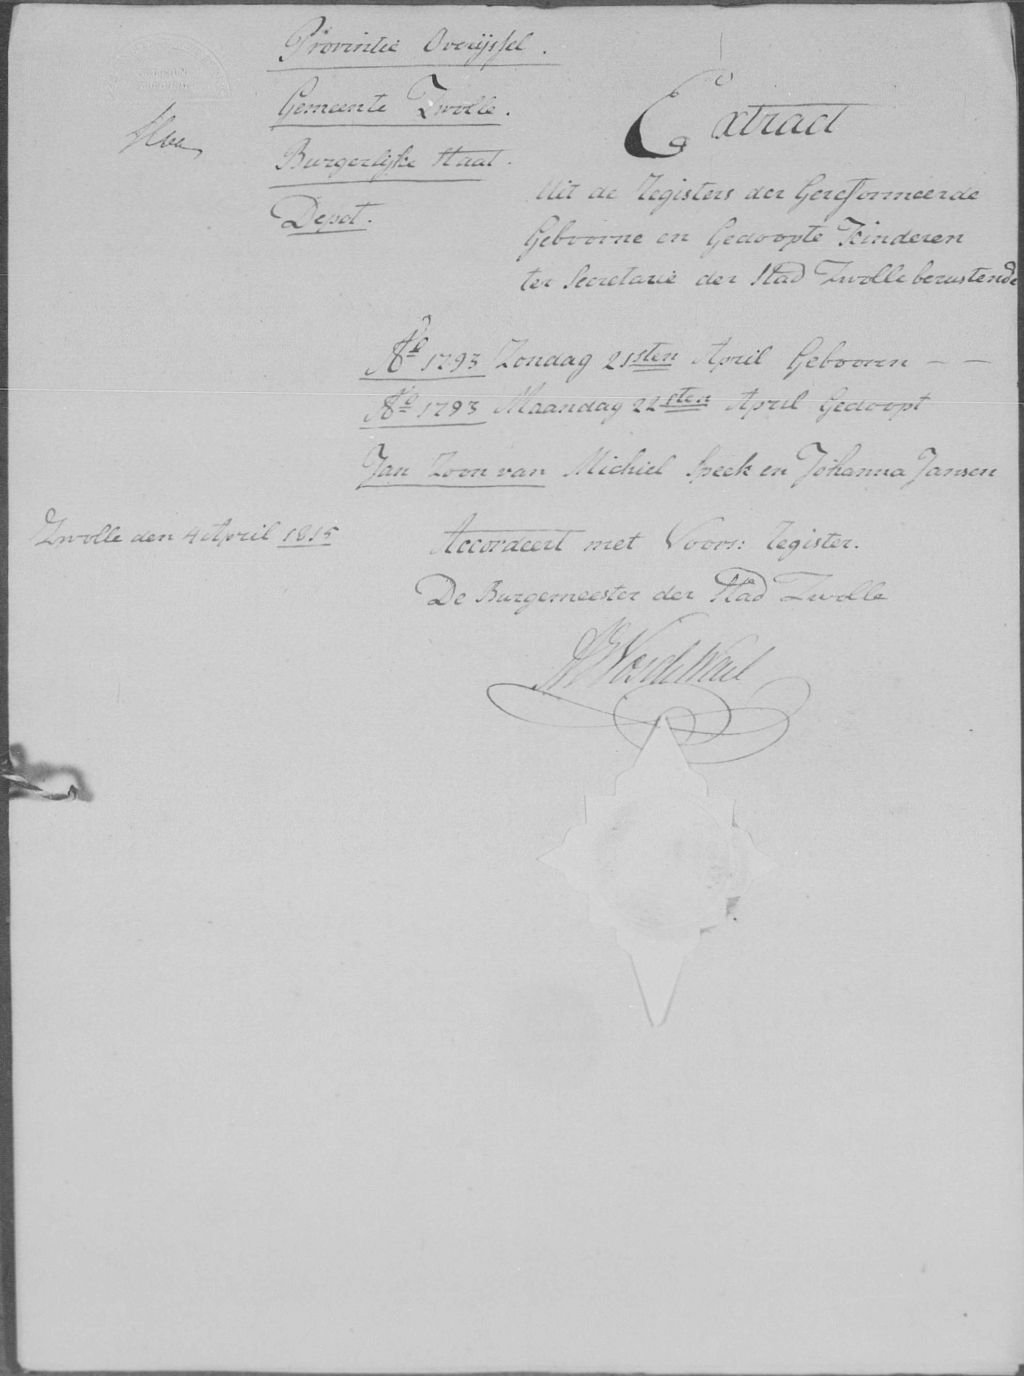 Provintie Overijssel.
Gemeente Zwolle.
Burgerlijke Staat.
Depot.
Extract
Uit de Registers der Gereformeerde
Geboorne en Gedoopte Kinderen
ter Secretarie der Stad Zwolle berustende
Ao 1793 Zondag 21sten April Gebooren - -
Ao 1793 Maandag 22sten April Gedoopt
Jan Zoon van Michiel Speek en Johanna Jansen
Zwolle den 4 April 1815
Accordeert met Voors: Register.
De Burgemeester der Stad Zwolle